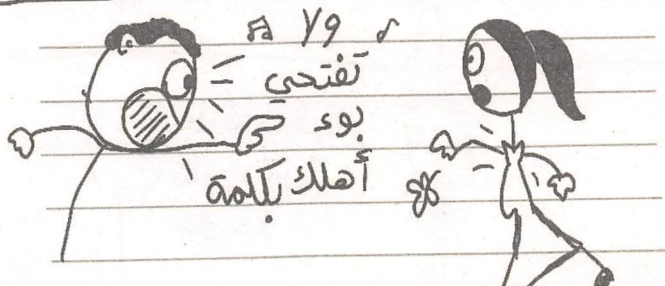 ولا
تفتحي
بوء
أهلك بكلمة